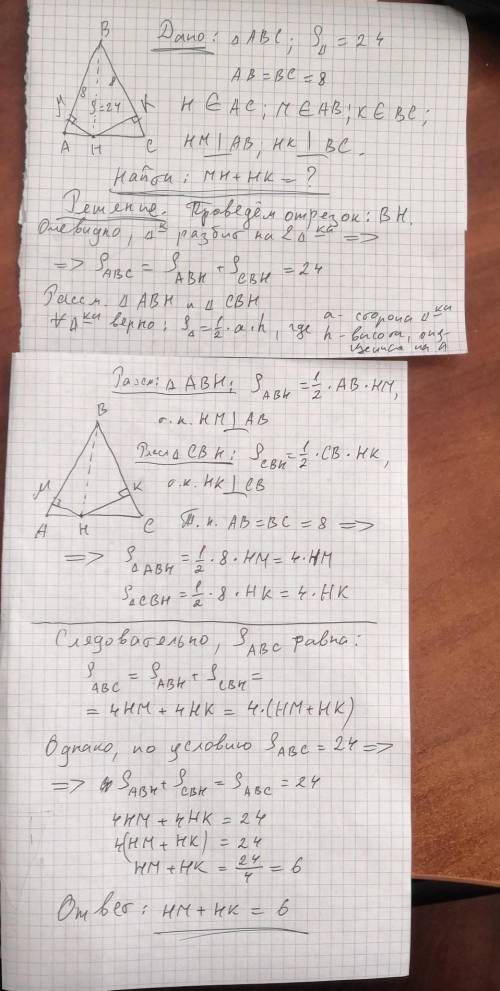 B
Дано: △ABC; S△ = 24
8
8
AB = BC = 8
S=24
M
K
H ∈ AC; M ∈ AB; K ∈ BC;
A H C
HM ⊥ AB, HK ⊥ BC.
Найти: MH + HK = ?
Решение. Проведём отрезок: BH.
Очевидно, △к разбит на 2△ка =>
=> S ABC = S ABH + S CBH = 24
Рассм. △ ABH и △ CBH
∀ △ка верно: S△ = 1/2 · a · h, где a - сторона △ка
h - высота,
Рассм: △ ABH: S ABH = 1/2 · AB · HM,
B
т.к. HM ⊥ AB
Рассм △ CBH: S CBH = 1/2 · CB · HK,
M
K
т.к. HK ⊥ CB
A H C
Т.к. AB = BC = 8 =>
=> S△ABH = 1/2 · 8 · HM = 4 · HM
S△CBH = 1/2 · 8 · HK = 4 · HK
Следовательно, S ABC равна:
S ABC = S ABH + S CBH =
= 4HM + 4HK = 4·(HM + HK)
Однако, по условию S ABC = 24 =>
=> S ABH + S CBH = S ABC = 24
4HM + 4HK = 24
4(HM + HK) = 24
HM + HK = 24/4 = 6
Ответ: HM + HK = 6